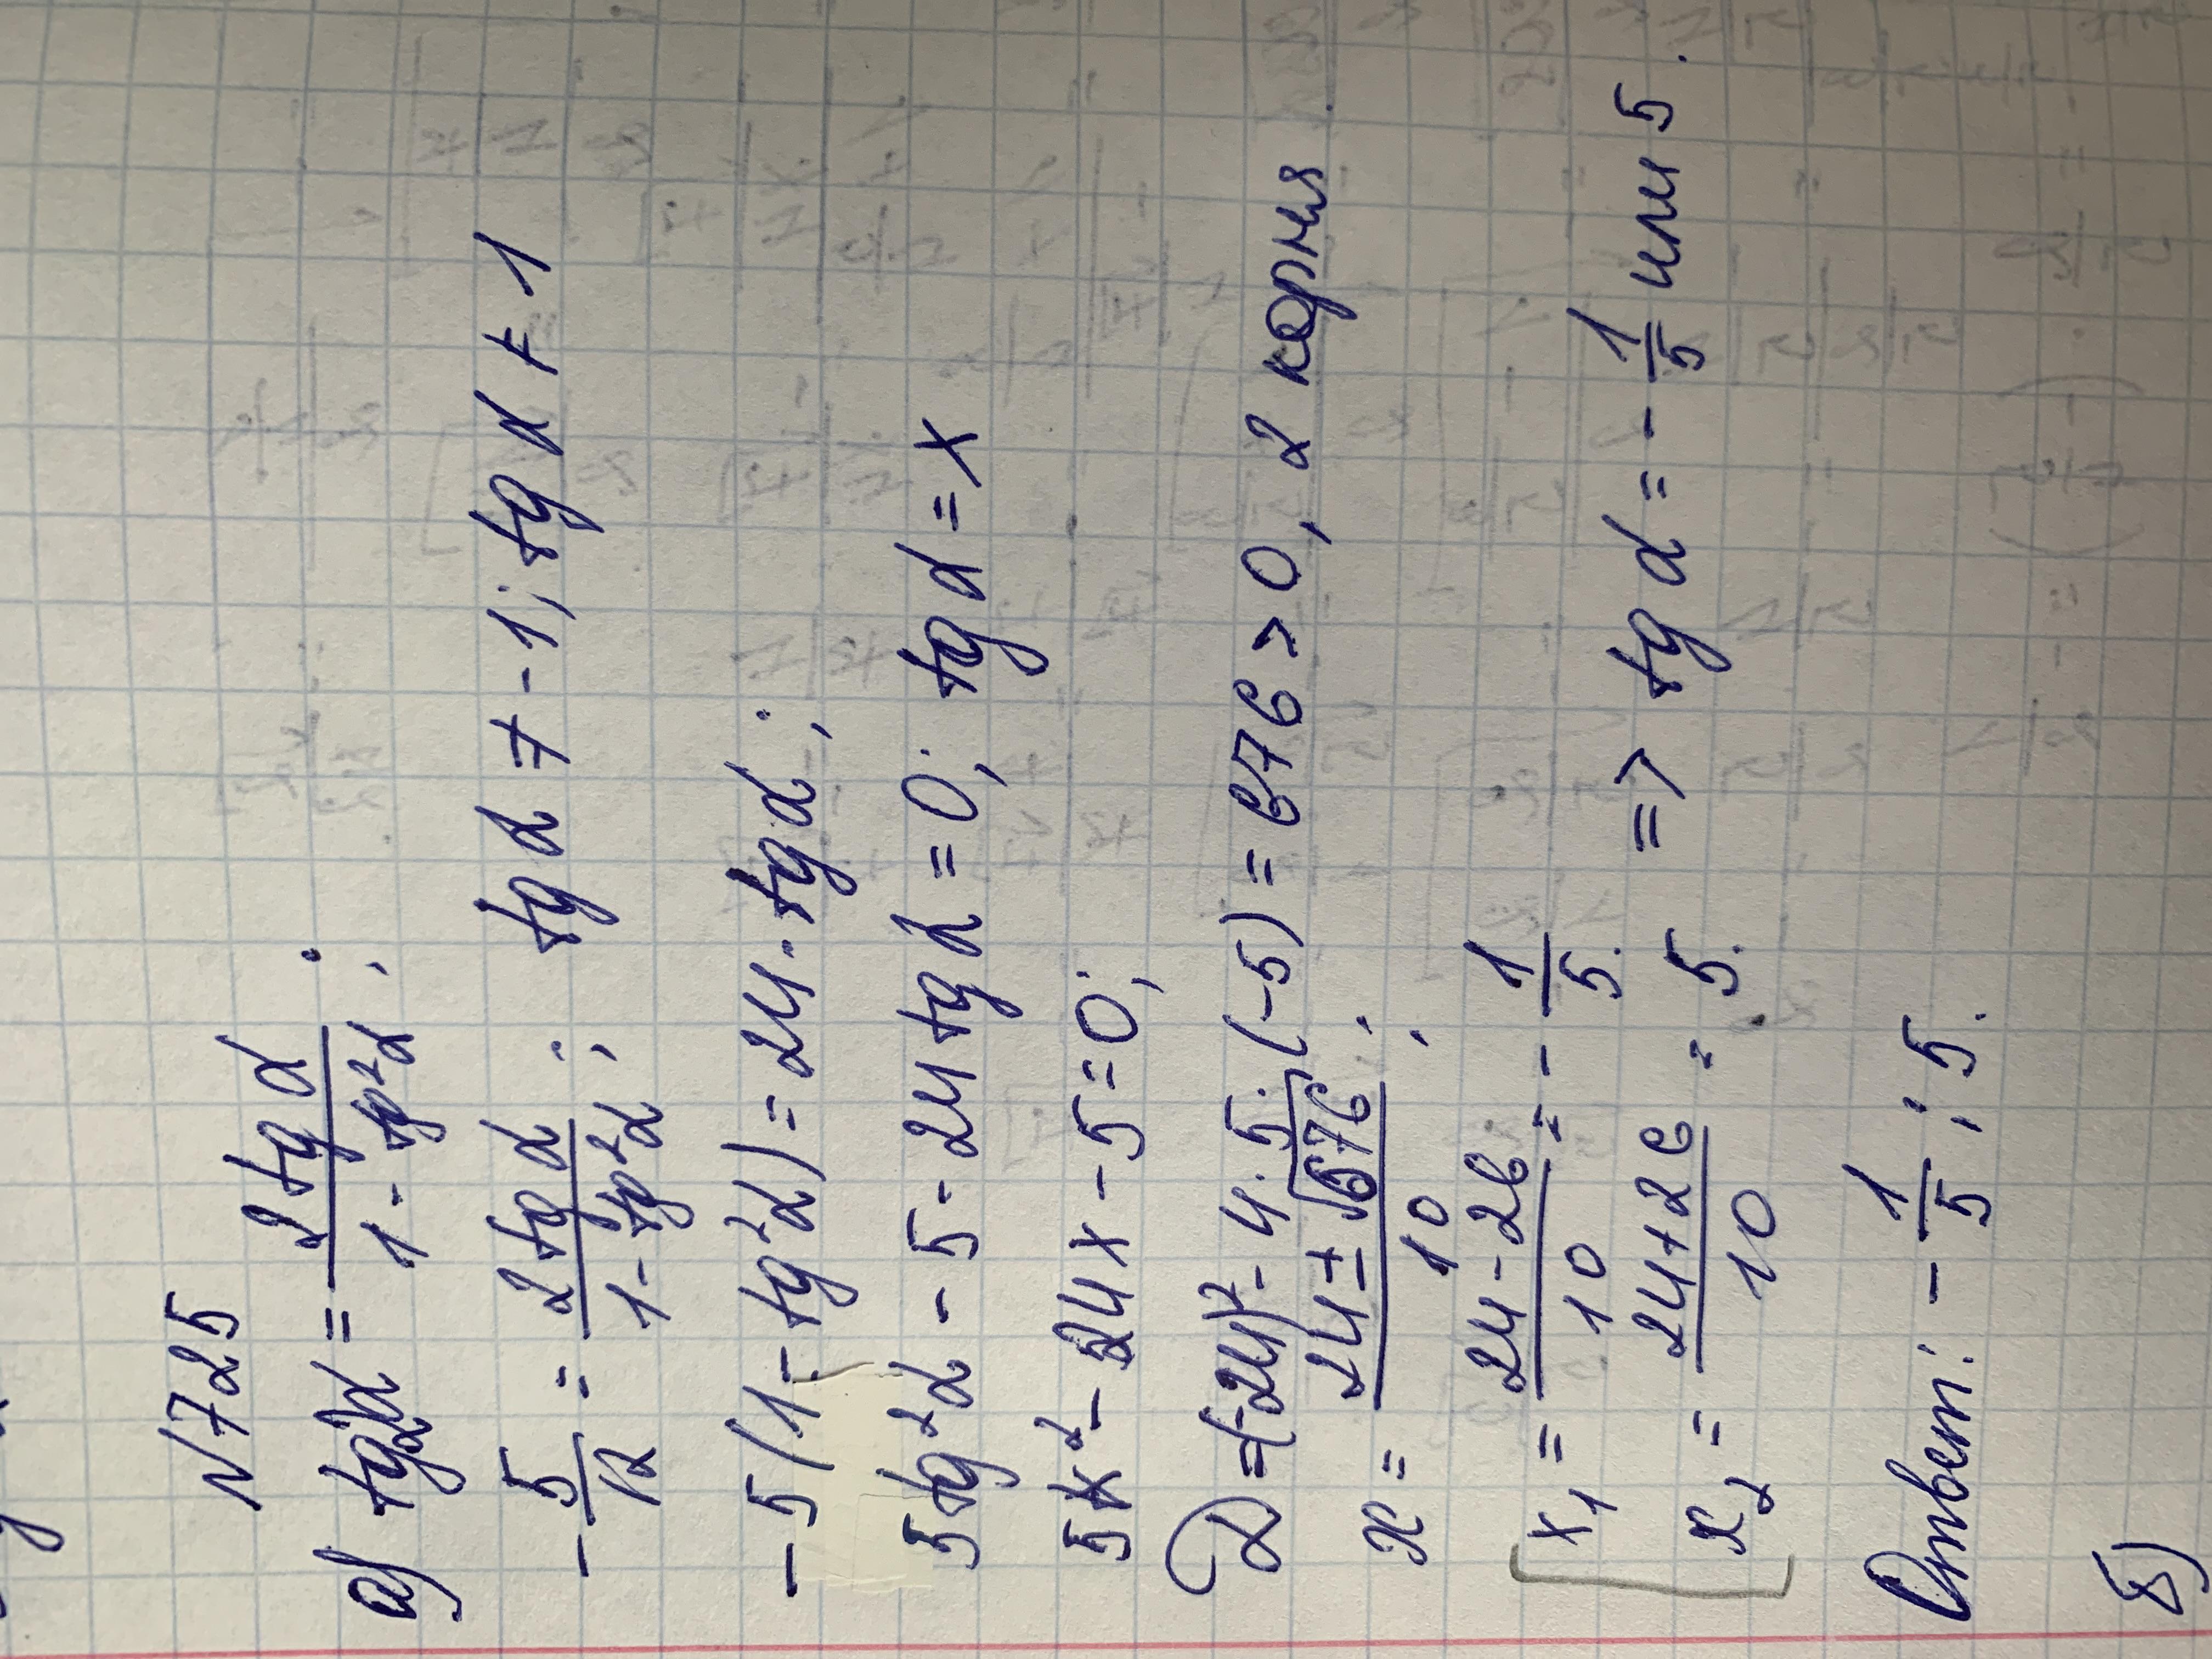 N725
а) tg2α = 2 tg α / 1 - tg²α ;
- 5/12 = 2 tg α / 1 - tg²α ; tg α ≠ -1; tg α ≠ 1
- 5 (1 - tg²α) = 24 · tg α ;
5 tg²α - 5 - 24 tg α = 0; tg α = x
5x² - 24x - 5 = 0;
D = (-24)² - 4 · 5 · (-5) = 676 > 0, 2 корня
x = 24 ± √676 / 10 ;
x₁ = 24 - 26 / 10 = - 1/5.
x₂ = 24 + 26 / 10 = 5. => tg α = - 1/5 или 5.
Ответ: - 1/5 ; 5.
б)